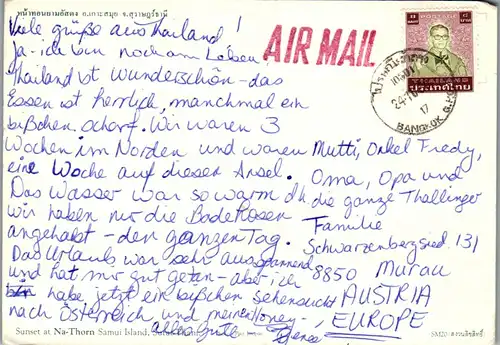 หน้าทอนยามอัสดง อ.เกาะสมุย จ.สุราษฎร์ธานี
Viele grüße aus Thailand!
Ja - ich bin noch am Leben
Thailand ist wunderschön - das
Essen ist herrlich, manchmal ein
bißchen scharf. Wir waren 3
Wochen im Norden und waren
eine Woche auf dieser Insel.
Das Wasser war so warm d.h.
wir haben nur die Badehosen
angehabt - den ganzen Tag.
Das Urlaub war sehr ausspannend
und hat mir gut getan - aber ich
habe jetzt ein bißchen Sehensucht
nach Österreich und meinen Honey -
alles gute
AIR MAIL
POSTAGE
THAILAND
ประเทศไทย
BANGKOK G.P.O.
Mutti, Onkel Fredy,
Oma, Opa und
die ganze Thallinger
Familie
Schwarzenbergsied. 131
8850 Murau
AUSTRIA
EUROPE
Sunset at Na-Thorn Samui Island,